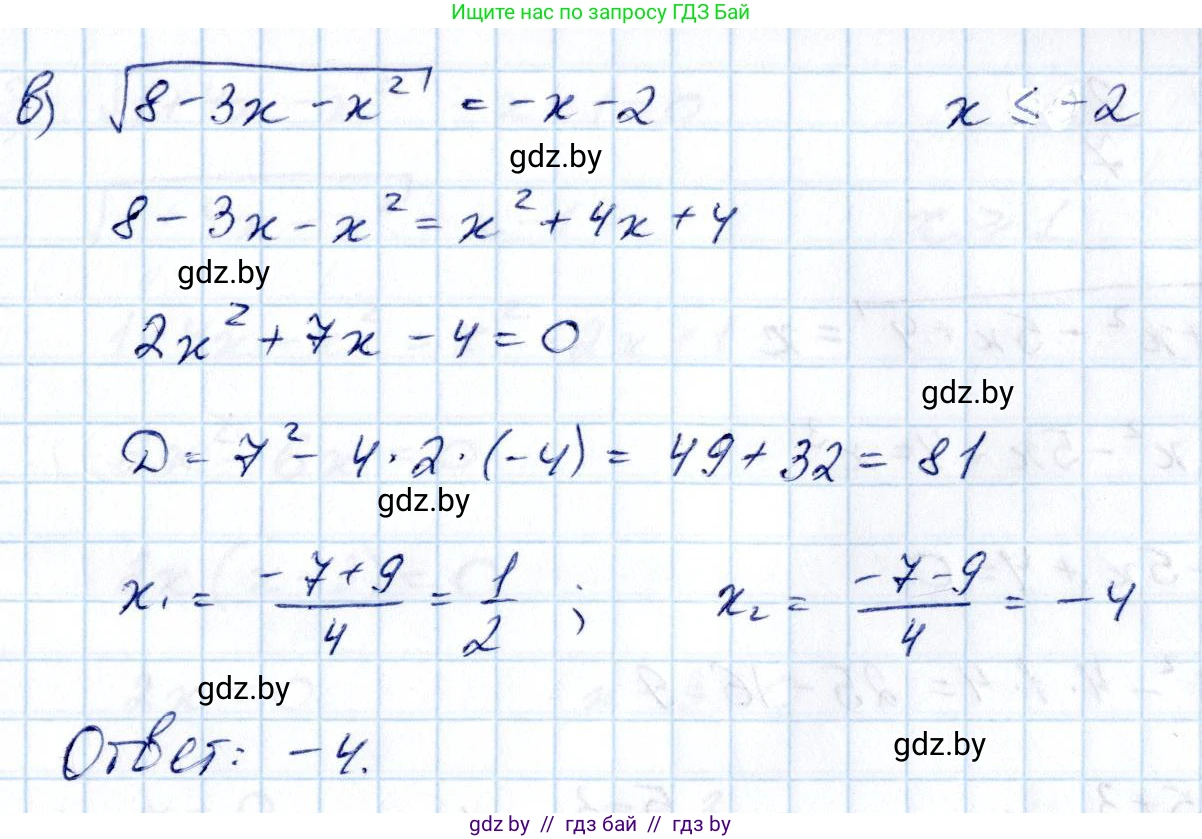 Ищите нас по запросу ГДЗ Бай
в) √(8 - 3x - x²) = -x - 2    x ≤ -2
gdz.by
8 - 3x - x² = x² + 4x + 4
gdz.by
2x² + 7x - 4 = 0
gdz.by
D = 7² - 4 · 2 · (-4) = 49 + 32 = 81
gdz.by
x₁ = (-7+9)/4 = 1/2 ;    x₂ = (-7-9)/4 = -4
gdz.by
Ответ: -4.
gdz.by
gdz.by // гдз бай // гдз by